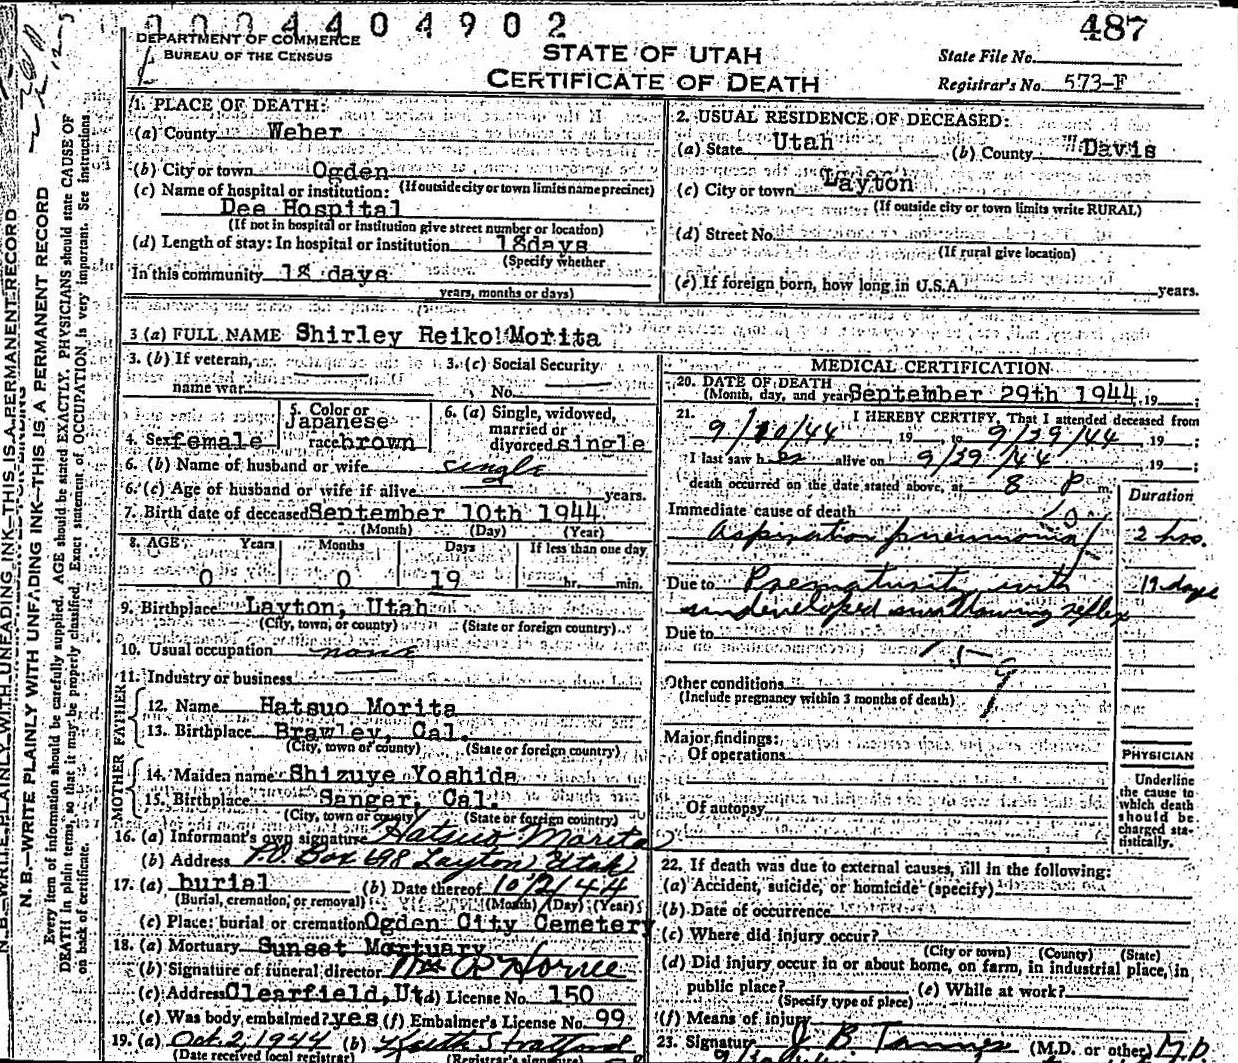 0004404902
487
DEPARTMENT OF COMMERCE
BUREAU OF THE CENSUS
STATE OF UTAH
CERTIFICATE OF DEATH
State File No.
Registrar's No. 573-F
1. PLACE OF DEATH:
(a) County Weber
(b) City or town Ogden
(If outside city or town limits name precinct)
(c) Name of hospital or institution:
Dee Hospital
(If not in hospital or Institution give street number or location)
(d) Length of stay: In hospital or institution 18 days
(Specify whether
In this community 18 days
years, months or days)
2. USUAL RESIDENCE OF DECEASED:
(a) State Utah (b) County Davis
(c) City or town Layton
(If outside city or town limits write RURAL)
(d) Street No.
(If rural give location)
(e) If foreign born, how long in U.S.A. years.
3 (a) FULL NAME Shirley Reiko Morita
3. (b) If veteran, name war
3. (c) Social Security No.
4. Sex female
5. Color or race Japanese brown
6. (a) Single, widowed, married or divorced single
6. (b) Name of husband or wife single
6. (c) Age of husband or wife if alive years.
7. Birth date of deceased September 10th 1944
(Month) (Day) (Year)
8. AGE Years Months Days If less than one day
0 0 19 hr. min.
9. Birthplace Layton, Utah
(City, town, or county) (State or foreign country)
10. Usual occupation none
11. Industry or business
FATHER
12. Name Hatsuo Morita
13. Birthplace Brawley, Cal.
(City, town or county) (State or foreign country)
MOTHER
14. Maiden name Shizuye Yoshida
15. Birthplace Sanger, Cal.
(City, town or county) (State or foreign country)
16. (a) Informant's own signature Hatsuo Morita
(b) Address P.O. Box 698 Layton, Utah
17. (a) burial (b) Date thereof 10/2/44
(Burial, cremation, or removal) (Month) (Day) (Year)
(c) Place: burial or cremation Ogden City Cemetery
18. (a) Mortuary Sunset Mortuary
(b) Signature of funeral director
(c) Address Clearfield, Ut (d) License No. 150
(e) Was body embalmed? yes (f) Embalmer's License No. 99
19. (a) Oct. 2, 1944 (b)
(Date received local registrar) (Registrar's signature)
MEDICAL CERTIFICATION
20. DATE OF DEATH
(Month, day, and year) September 29th 1944, 19
21. I HEREBY CERTIFY, That I attended deceased from
9/10/44 19 to 9/29/44 19 ;
I last saw her alive on 9/29/44 , 19 ;
death occurred on the date stated above, at 8 P m.
Duration
Immediate cause of death
Aspiration pneumonia 2 hrs.
Due to Prematurity with 19 days
undeveloped swallowing reflex
Due to
159
Other conditions
(Include pregnancy within 3 months of death)
Major findings:
Of operations
Of autopsy
PHYSICIAN
Underline
the cause to
which death
should be
charged sta-
tistically.
22. If death was due to external causes, fill in the following:
(a) Accident, suicide, or homicide (specify)
(b) Date of occurrence
(c) Where did injury occur?
(City or town) (County) (State)
(d) Did injury occur in or about home, on farm, in industrial place, in
public place? (e) While at work?
(Specify type of place)
(f) Means of injury
23. Signature J B (M.D. or other) M.D.
N. B.—WRITE PLAINLY WITH UNFADING INK—THIS IS A PERMANENT RECORD
N. B.—WRITE PLAINLY WITH UNFADING INK—THIS IS A PERMANENT RECORD
Every item of information should be carefully supplied. AGE should be stated EXACTLY. PHYSICIANS should state CAUSE OF
DEATH in plain terms, so that it may be properly classified. Exact statement of OCCUPATION is very important. See instructions
on back of certificate.